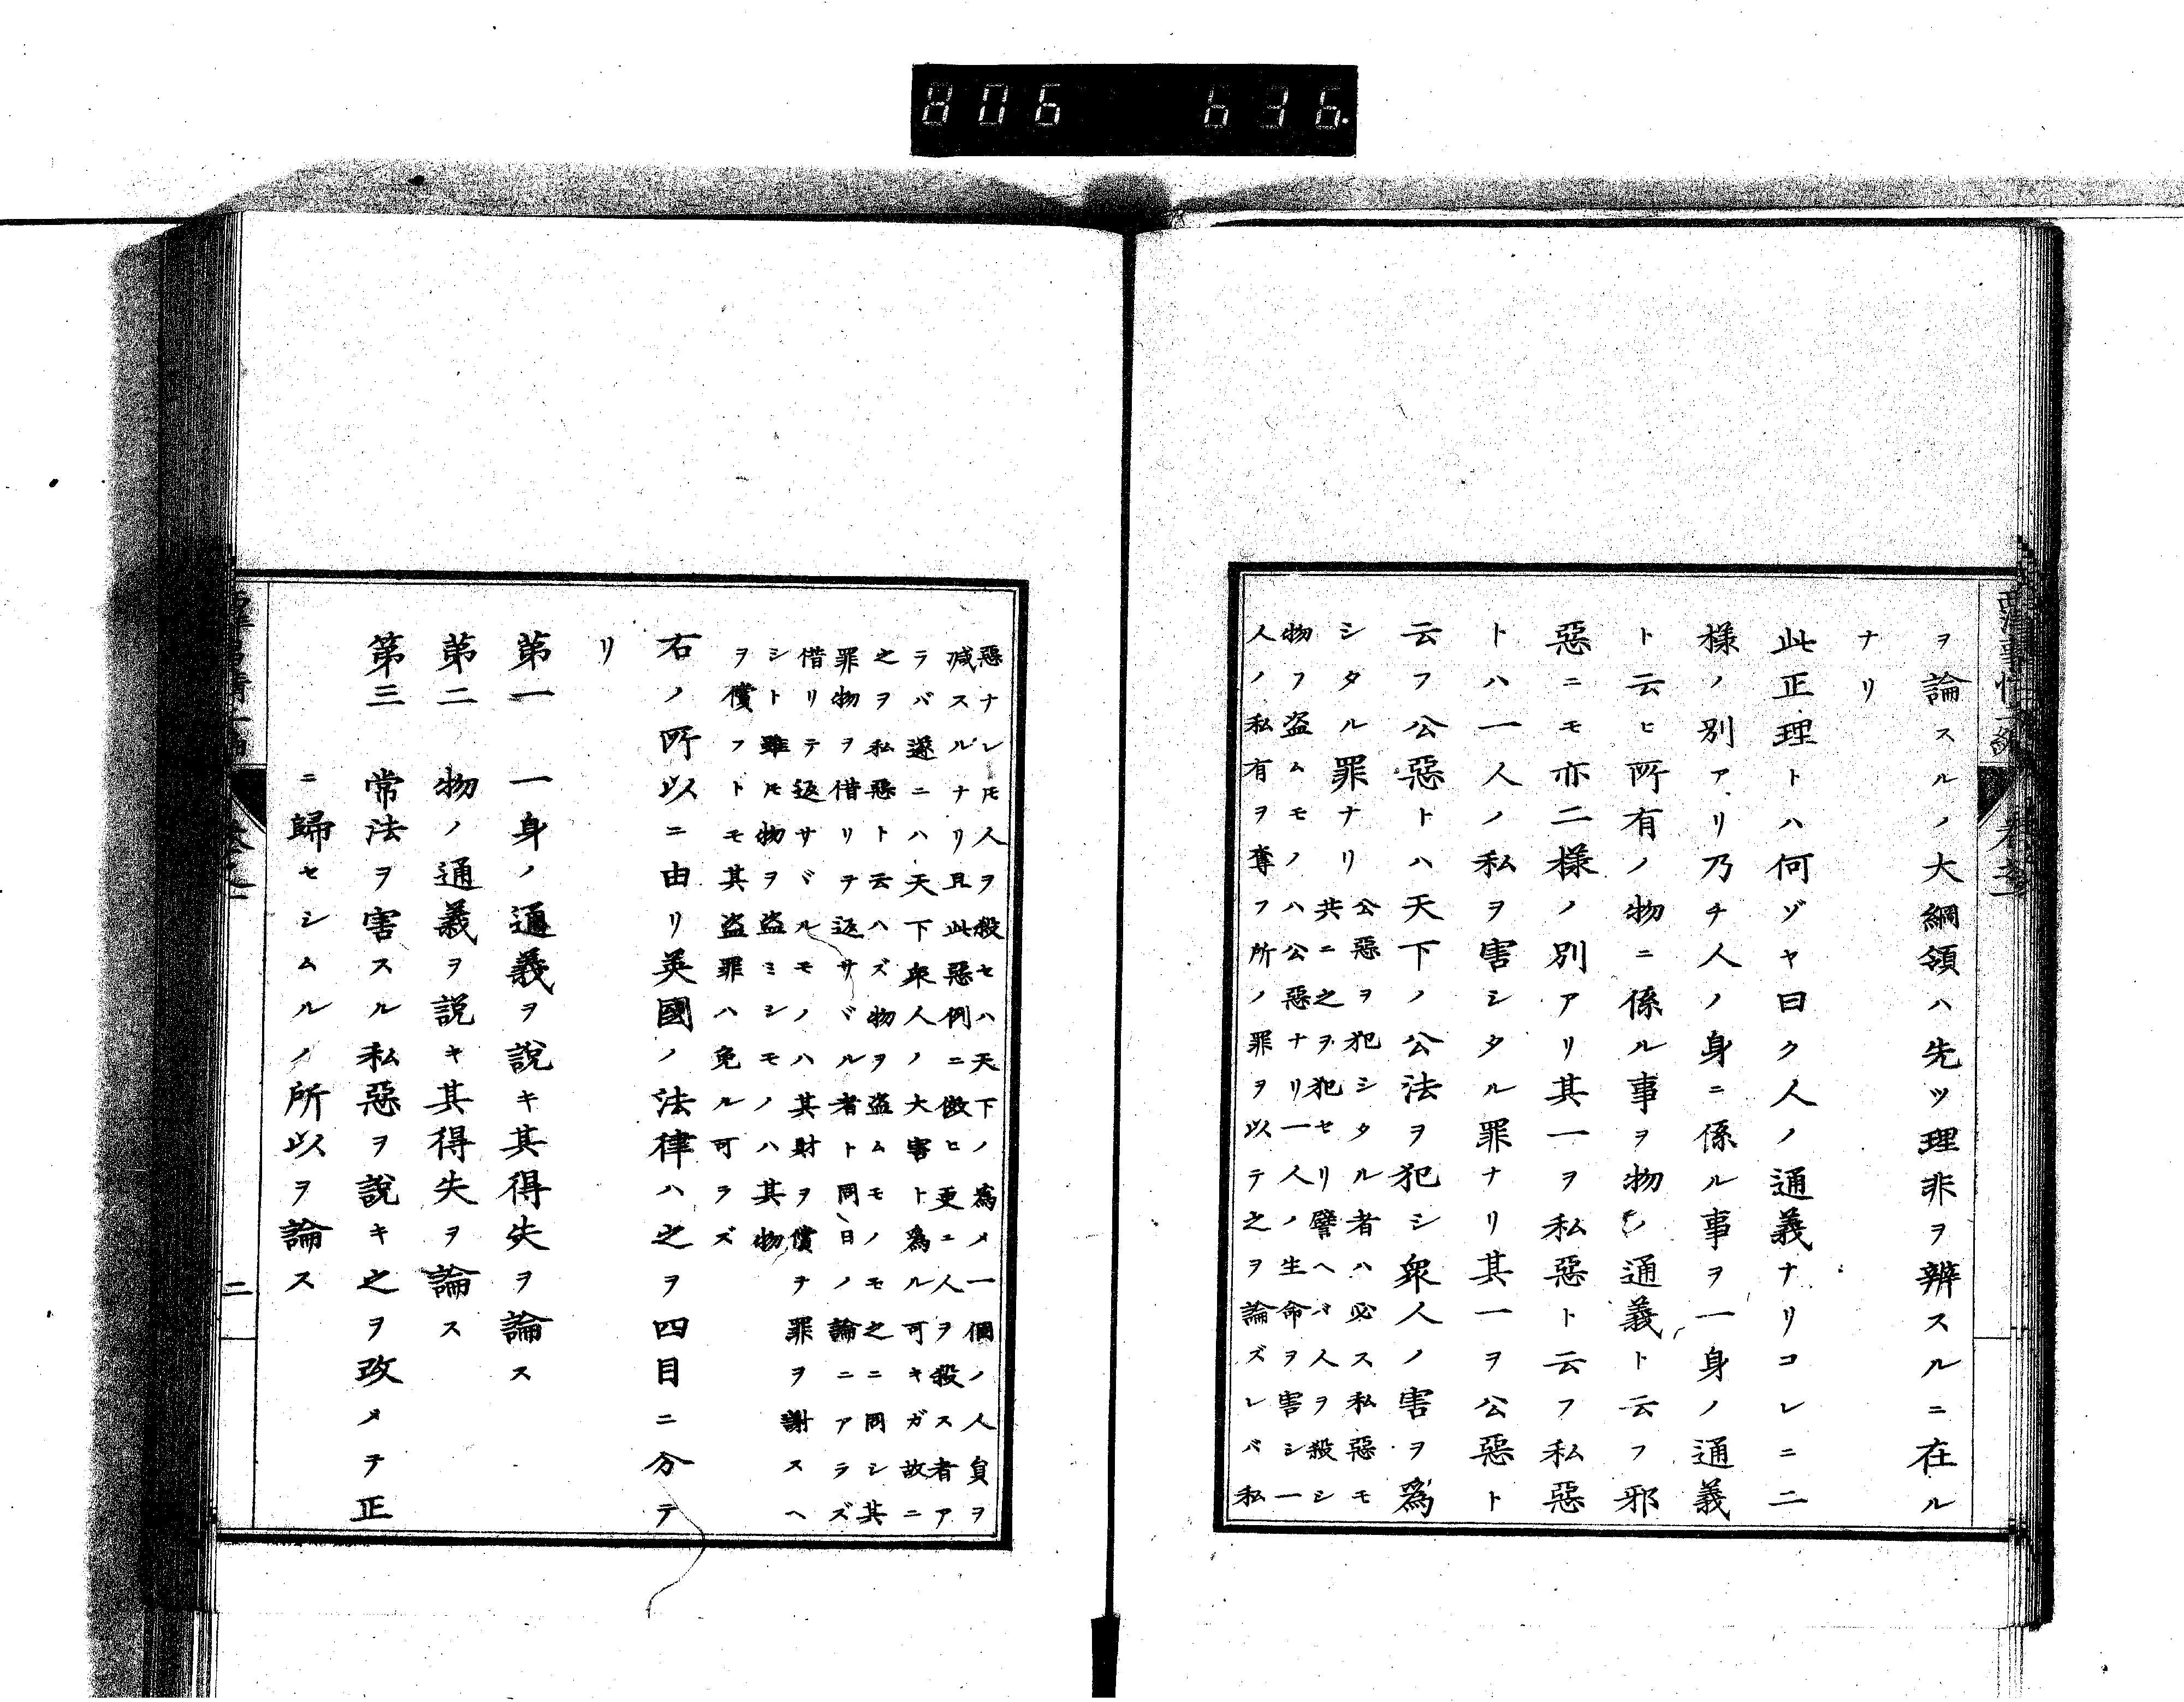 806 636.
ヲ論スルノ大綱領ハ先ツ理非ヲ辨スルニ在ル
ナリ
此正理トハ何ゾヤ曰ク人ノ通義ナリコレニ二
様ノ別アリ乃チ人ノ身ニ係ル事ヲ一身ノ通義
ト云ヒ所有ノ物ニ係ル事ヲ物ノ通義ト云フ邪
惡ニモ亦二様ノ別アリ其一ヲ私惡ト云フ私惡
トハ一人ノ私ヲ害シタル罪ナリ其一ヲ公惡ト
云フ公惡トハ天下ノ公法ヲ犯シ衆人ノ害ヲ爲
シタル罪ナリ
公惡ヲ犯シタル者ハ必ス私惡モ
共ニ之ヲ犯セリ譬ヘバ人ヲ殺シ
物フ盗ムモノハ公惡ナリ一人ノ生命ヲ害シ一
人ノ私有ヲ奪フ所ノ罪ヲ以テ之ヲ論ズレバ私
惡ナレ𪜈人ヲ殺セハ天下ノ爲メニ一個ノ人員ヲ
减スルナリ且此惡例ニ傚ヒ更ニ人ヲ殺ス者ア
ラバ遂ニハ天下衆人ノ大害ト爲ル可キガ故ニ
之ヲ私惡ト云ハズ物ヲ盗ムモノモ之ニ同シ其
罪物ヲ借リテ返サバル者ト同日ノ論ニアラズ
借リテ返サバルモノハ其財ヲ償ヲ罪ヲ謝スヘ
シト雖𪜈物ヲ盗ミシモノハ其物
ヲ償フトモ其盗罪ハ免ル可ラズ
右ノ所以ニ由リ英國ノ法律ハ之ヲ四目ニ分テ
リ
第一 一身ノ通義ヲ説キ其得失ヲ論ス
第二 物ノ通義ヲ説キ其得失ヲ論ス
第三 常法ヲ害スル私惡ヲ説キ之ヲ改メテ正
ニ歸セシムルノ所以ヲ論ス
二